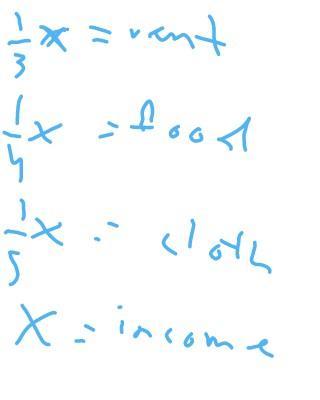 1/3 x = rent
1/4 x = food
1/5 x = cloth
X = income